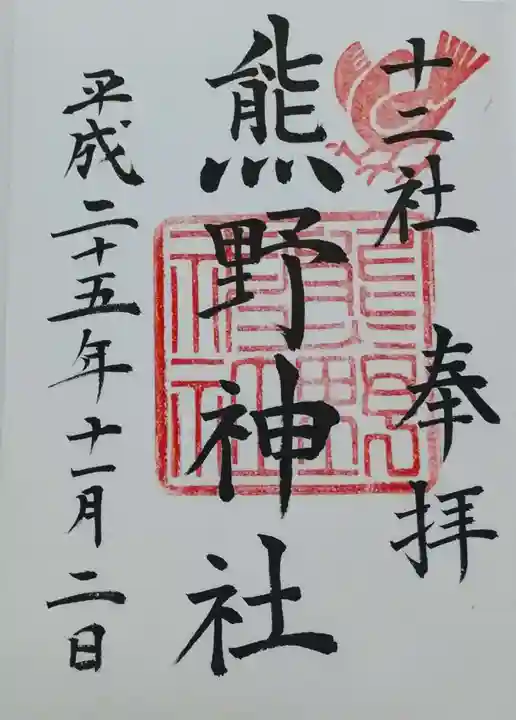 十二社
奉拝
熊野神社
平成二十五年十一月二日